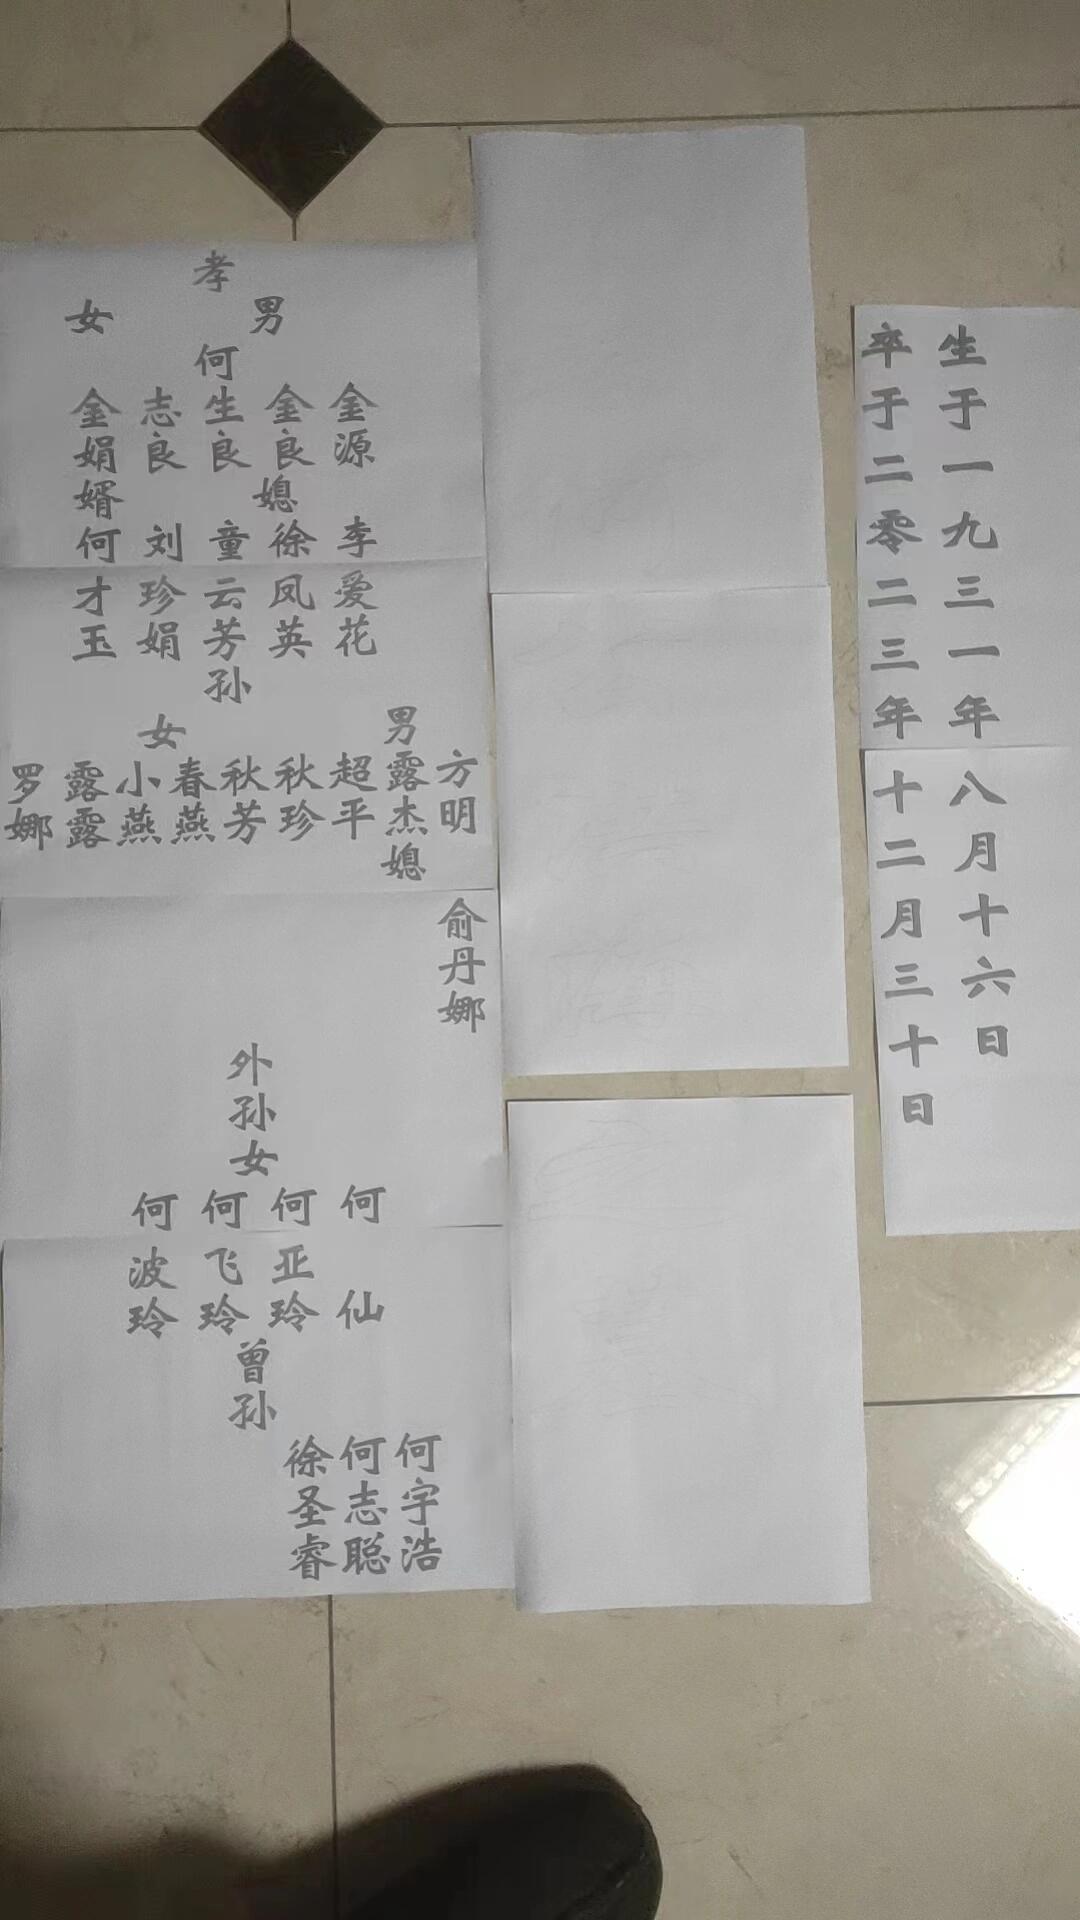 生于一九三一年八月十六日
卒于二零二三年十二月三十日
孝
男
女
何
金源
金良
生良
志良
金娟
媳
婿
李爱花
徐凤英
童云芳
刘珍娟
何才玉
孙
男
女
方明
露杰
超平
秋珍
秋芳
春燕
小燕
露露
罗娜
媳
俞丹娜
外孙女
何仙
何亚玲
何飞玲
何波玲
曾孙
何宇浩
何志聪
徐圣睿